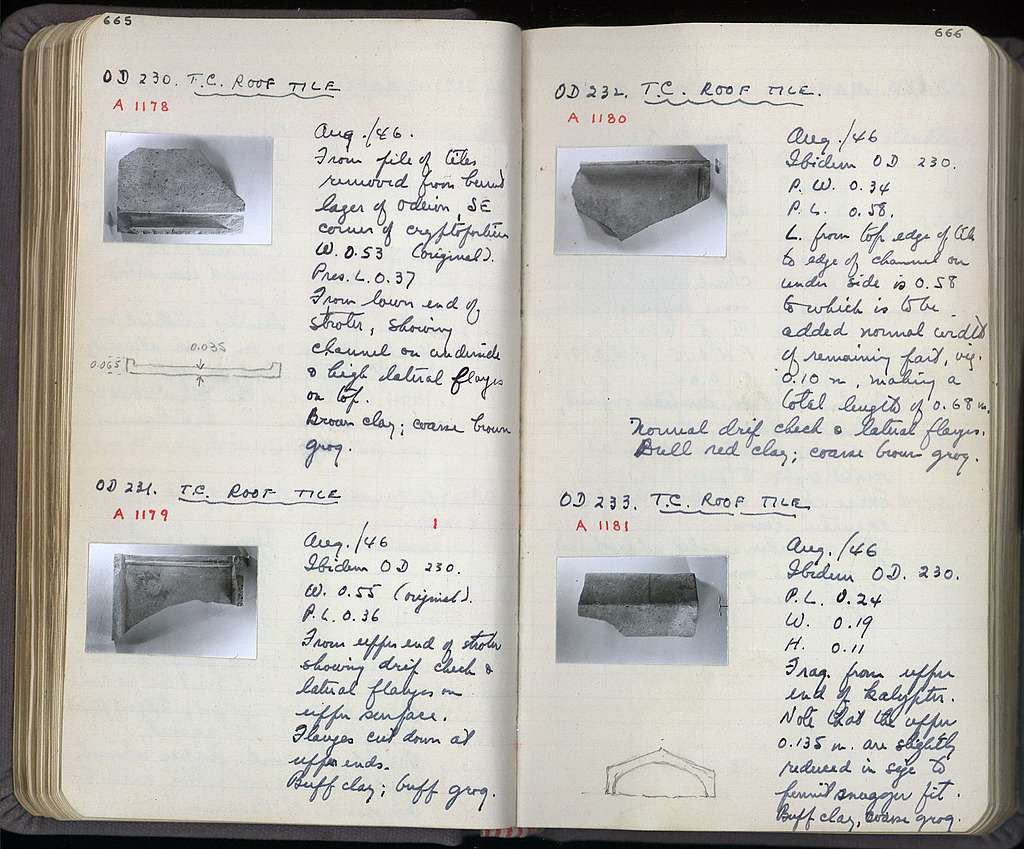 665
OD 230. T.C. ROOF TILE
A 1178
Aug./46.
From pile of tiles
removed from burnt
layer of Odeion, SE
corner of cryptoportico
W. 0.53 (original).
Pres. L. 0.37
From lower end of
stroter, showing
channel on underside
& high lateral flanges
on top.
Brown clay; coarse brown
grog.
0.035
0.065
OD 231. T.C. ROOF TILE
A 1179
1
Aug./46
Ibidem OD 230.
W. 0.55 (original).
P.L. 0.36
From upper end of stroter
showing drip check &
lateral flanges on
upper surface.
Flanges cut down at
upper ends.
Buff clay; buff grog.
666
OD 232. T.C. ROOF TILE.
A 1180
Aug./46
Ibidem OD 230.
P. W. 0.34
P. L. 0.58.
L. from top edge of tile
to edge of channel on
under side is 0.58
to which is to be
added normal width
of remaining part, viz.
0.10 m, making a
total length of 0.68 m.
Normal drip check & lateral flanges.
Dull red clay; coarse brown grog.
OD 233. T.C. ROOF TILE
A 1181
Aug./46
Ibidem OD. 230.
P.L. 0.24
W. 0.19
H. 0.11
Frag. from upper
end of kalypter.
Note that the upper
0.135 m. are slightly
reduced in size to
permit snugger fit.
Buff clay, coarse grog.